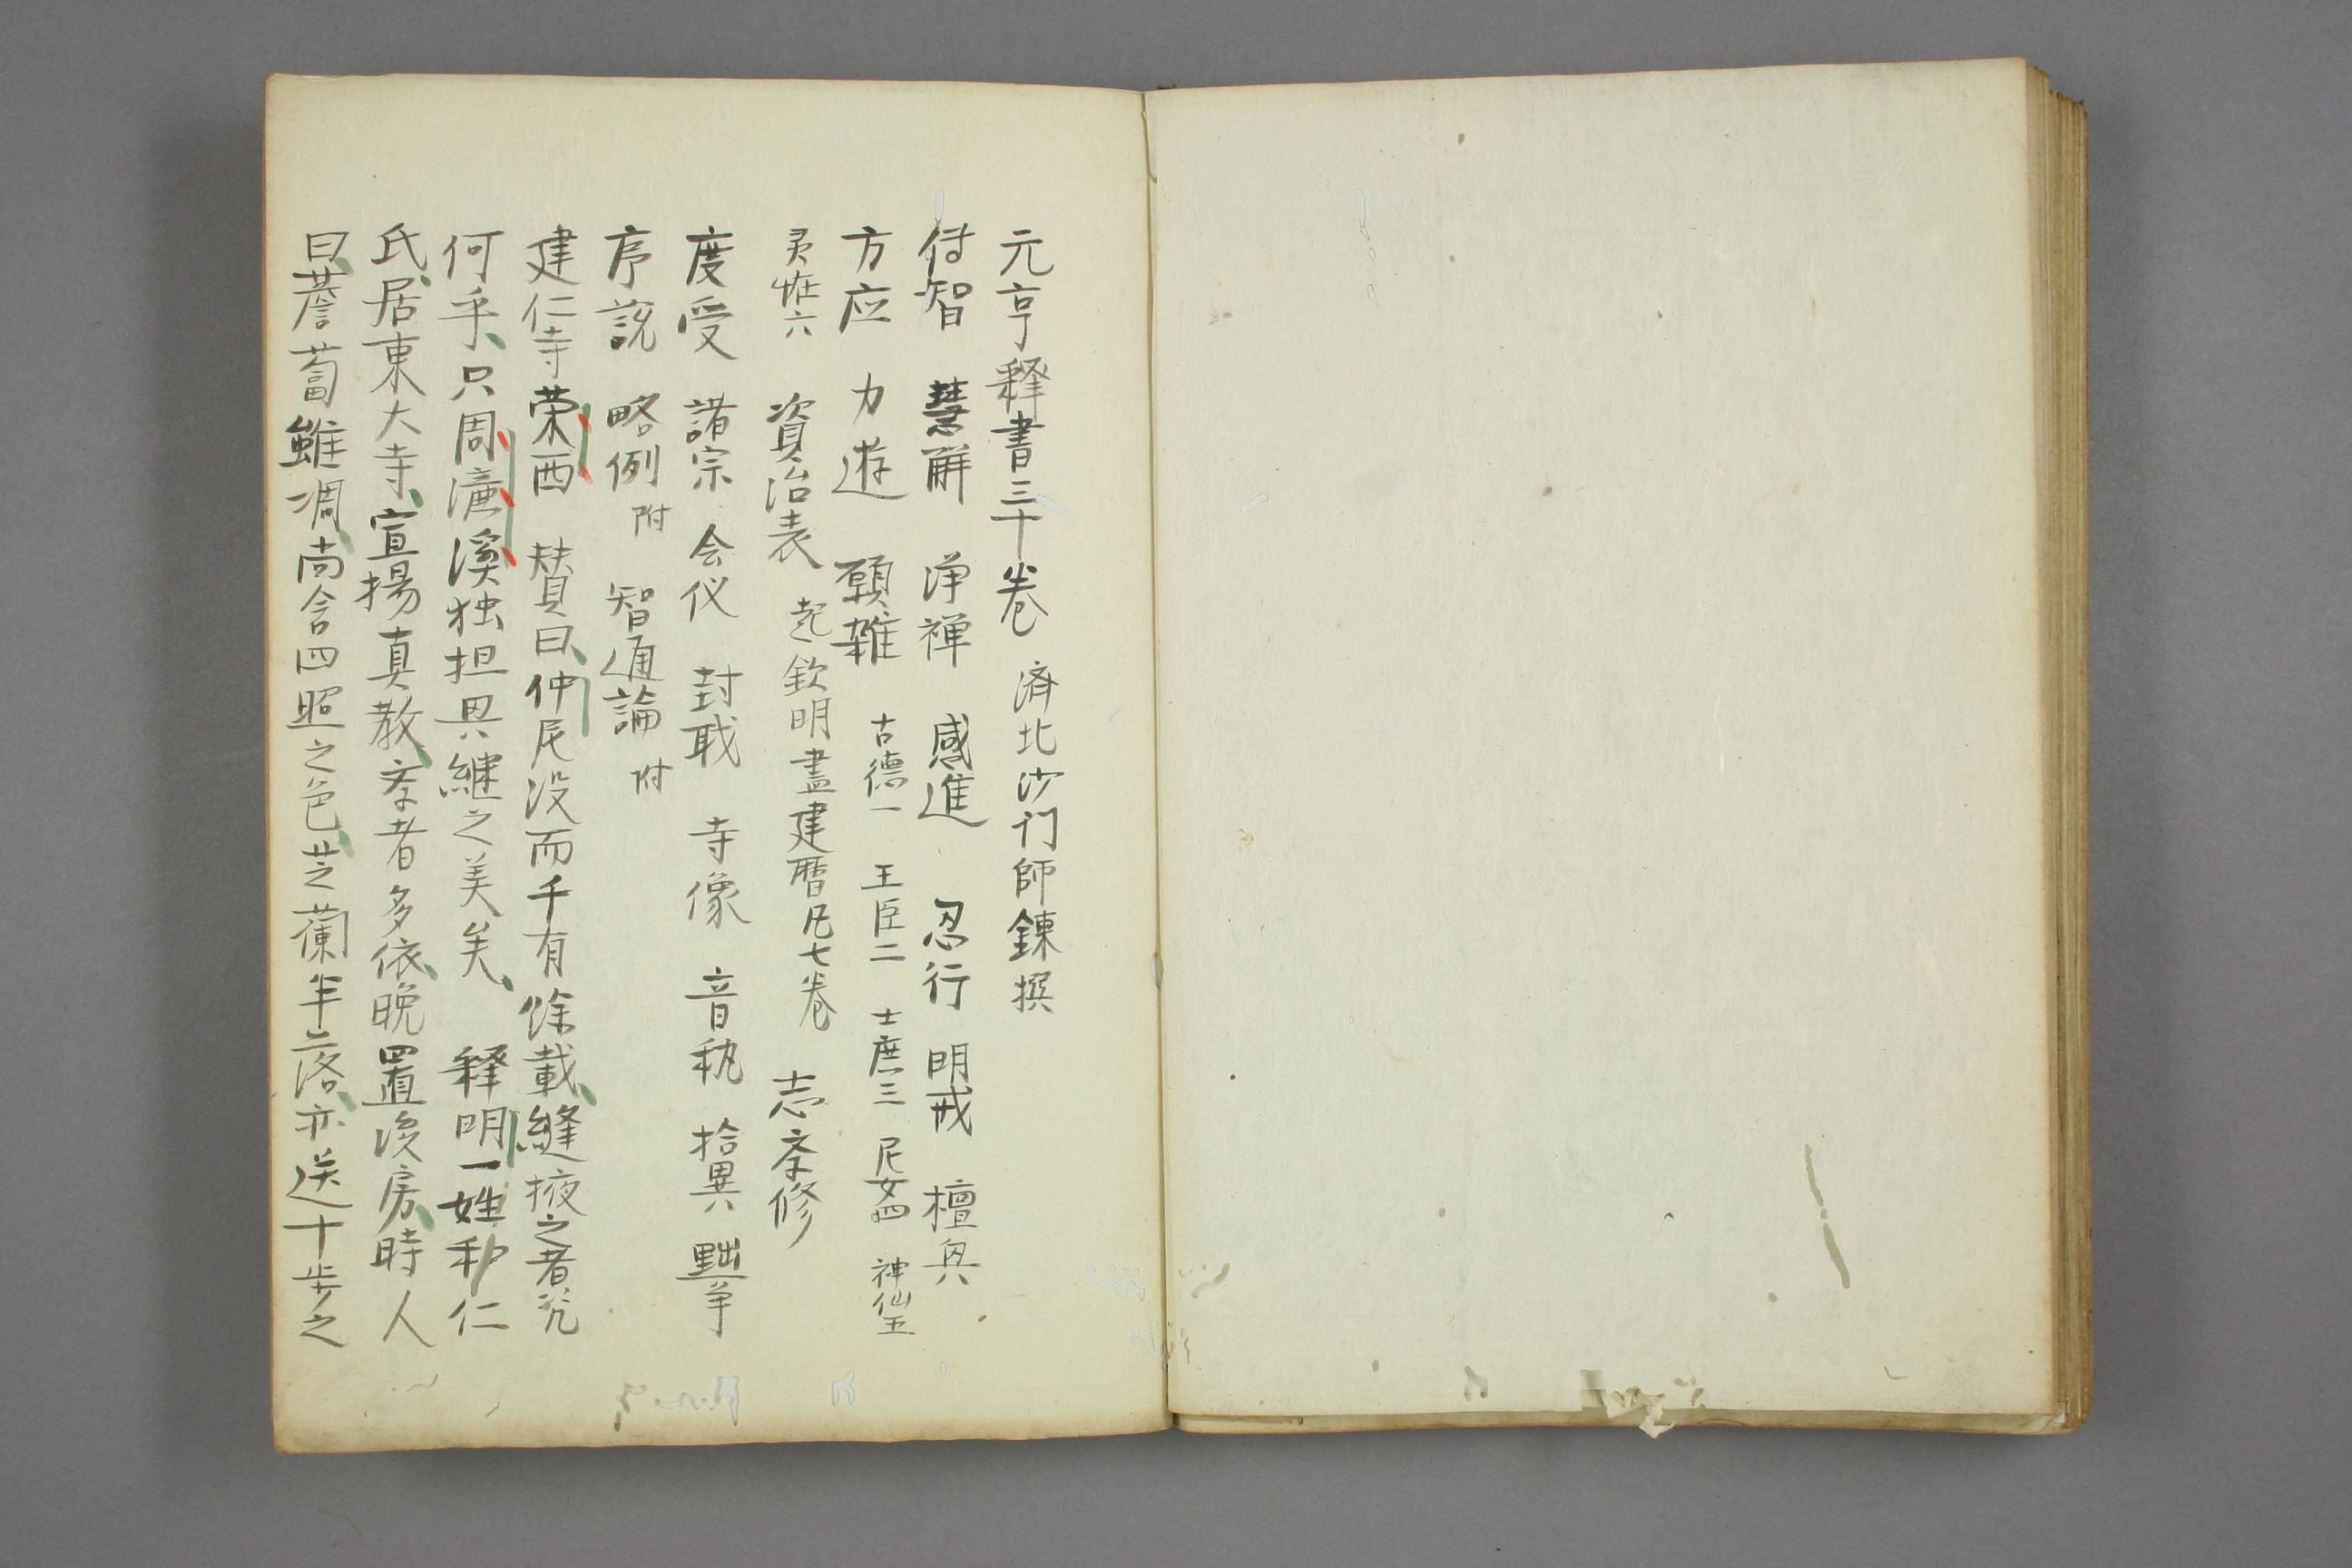 元亨釈書三十卷　済北沙门師錬撰
傳智　慧解　淨禅　感進　忍行　明戒　檀興
方応　力遊　願雑　古德一　王臣二　士庶三　尼女四　神仙五
灵恠六　資治表　起欽明盡建暦凡七卷　志　斈修
度受　諸宗　会仪　封职　寺像　音秇　拾異　黜争
序説　略例附　智通論附
建仁寺荣西　賛曰仲尼没而千有餘載縫掖之者究
何乎只周濂溪独担興継之美矣　释明一姓和仁
氏居東大寺宣揚真教斈者多依晚置後房時人
曰薝蔔雖凋尚含四照之色芝蘭半落亦送十步之